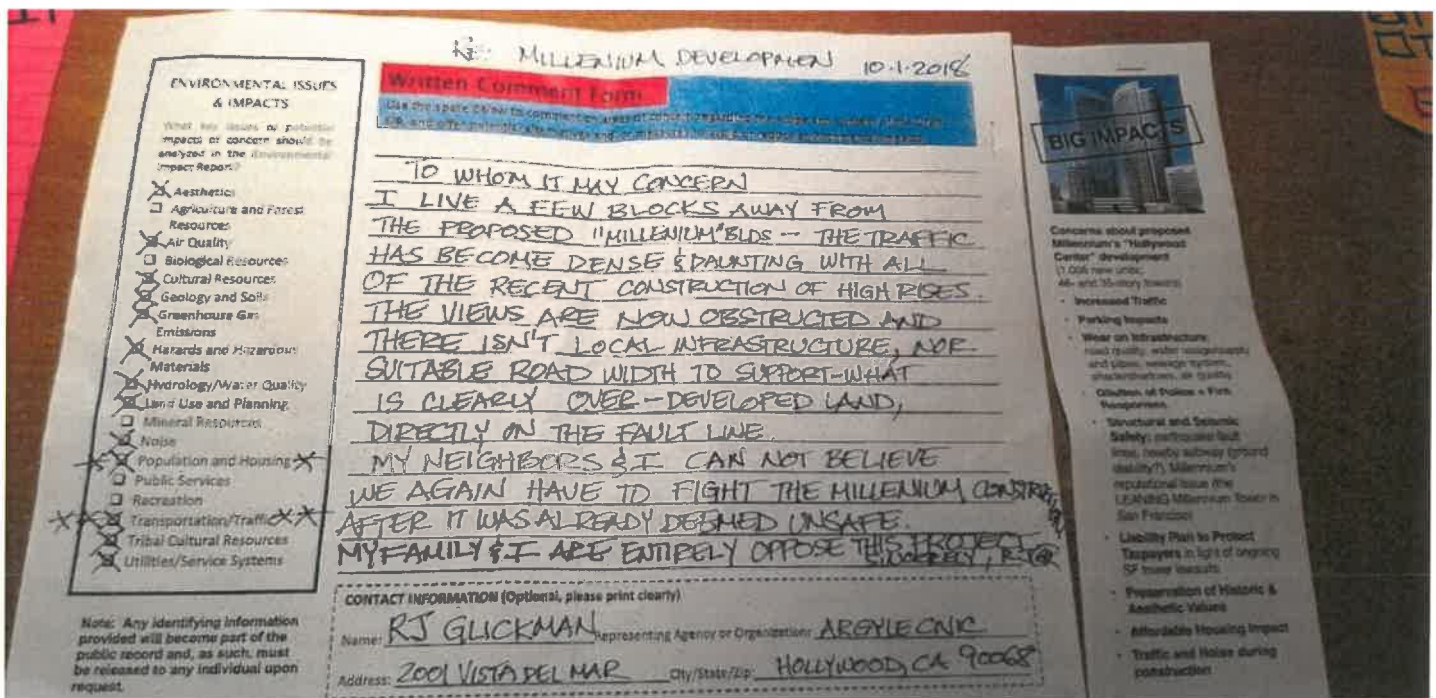 RE: MILLENIUM DEVELOPMEN 10-1-2018
ENVIRONMENTAL ISSUES
& IMPACTS
What key issues or potential
impacts of concern should be
analyzed in the Environmental
Impact Report?
Aesthetics
Agriculture and Forest
Resources
Air Quality
Biological Resources
Cultural Resources
Geology and Soils
Greenhouse Gas
Emissions
Hazards and Hazardous
Materials
Hydrology/Water Quality
Land Use and Planning
Mineral Resources
Noise
Population and Housing
Public Services
Recreation
Transportation/Traffic
Tribal Cultural Resources
Utilities/Service Systems
Note: Any identifying information
provided will become part of the
public record and, as such, must
be released to any individual upon
request.
Written Comment Form
Use the space below to comment on areas of concern regarding the scope
TO WHOM IT MAY CONCERN
I LIVE A FEW BLOCKS AWAY FROM
THE PROPOSED "MILLENIUM" BLDS - THE TRAFFIC
HAS BECOME DENSE & DAUNTING WITH ALL
OF THE RECENT CONSTRUCTION OF HIGH RISES.
THE VIEWS ARE NOW OBSTRUCTED AND
THERE ISN'T LOCAL INFRASTRUCTURE, NOR
SUITABLE ROAD WIDTH TO SUPPORT-WHAT
IS CLEARLY OVER-DEVELOPED LAND,
DIRECTLY ON THE FAULT LINE.
MY NEIGHBORS & I CAN NOT BELIEVE
WE AGAIN HAVE TO FIGHT THE MILLENIUM
AFTER IT WAS ALREADY DEEMED UNSAFE.
MY FAMILY & I ARE ENTIRELY OPPOSE THIS PROJECT
SINCERELY,
CONTACT INFORMATION (Optional, please print clearly)
Name: RJ GLICKMAN Representing Agency or Organization: ARGYLE CIVIC
Address: 2001 VISTA DEL MAR City/State/Zip: HOLLYWOOD, CA 90068
BIG IMPACTS
Concerns about proposed
Millennium's "Hollywood
Center" development
(1,005 new units;
46- and 35-story towers)
· Increased Traffic
· Parking Impacts
· Wear on Infrastructure:
road quality, water usage/supply
and pipes, sewage system,
shade/shadows, air quality
· Dilution of Police + Fire
Responses
· Structural and Seismic
Safety: earthquake fault
lines, nearby subway (ground
stability?), Millennium's
reputational issue (the
LEANING Millennium Tower in
San Francisco)
· Liability Plan to Protect
Taxpayers in light of ongoing
SF tower lawsuits
· Preservation of Historic &
Aesthetic Values
· Affordable Housing Impact
· Traffic and Noise during
construction